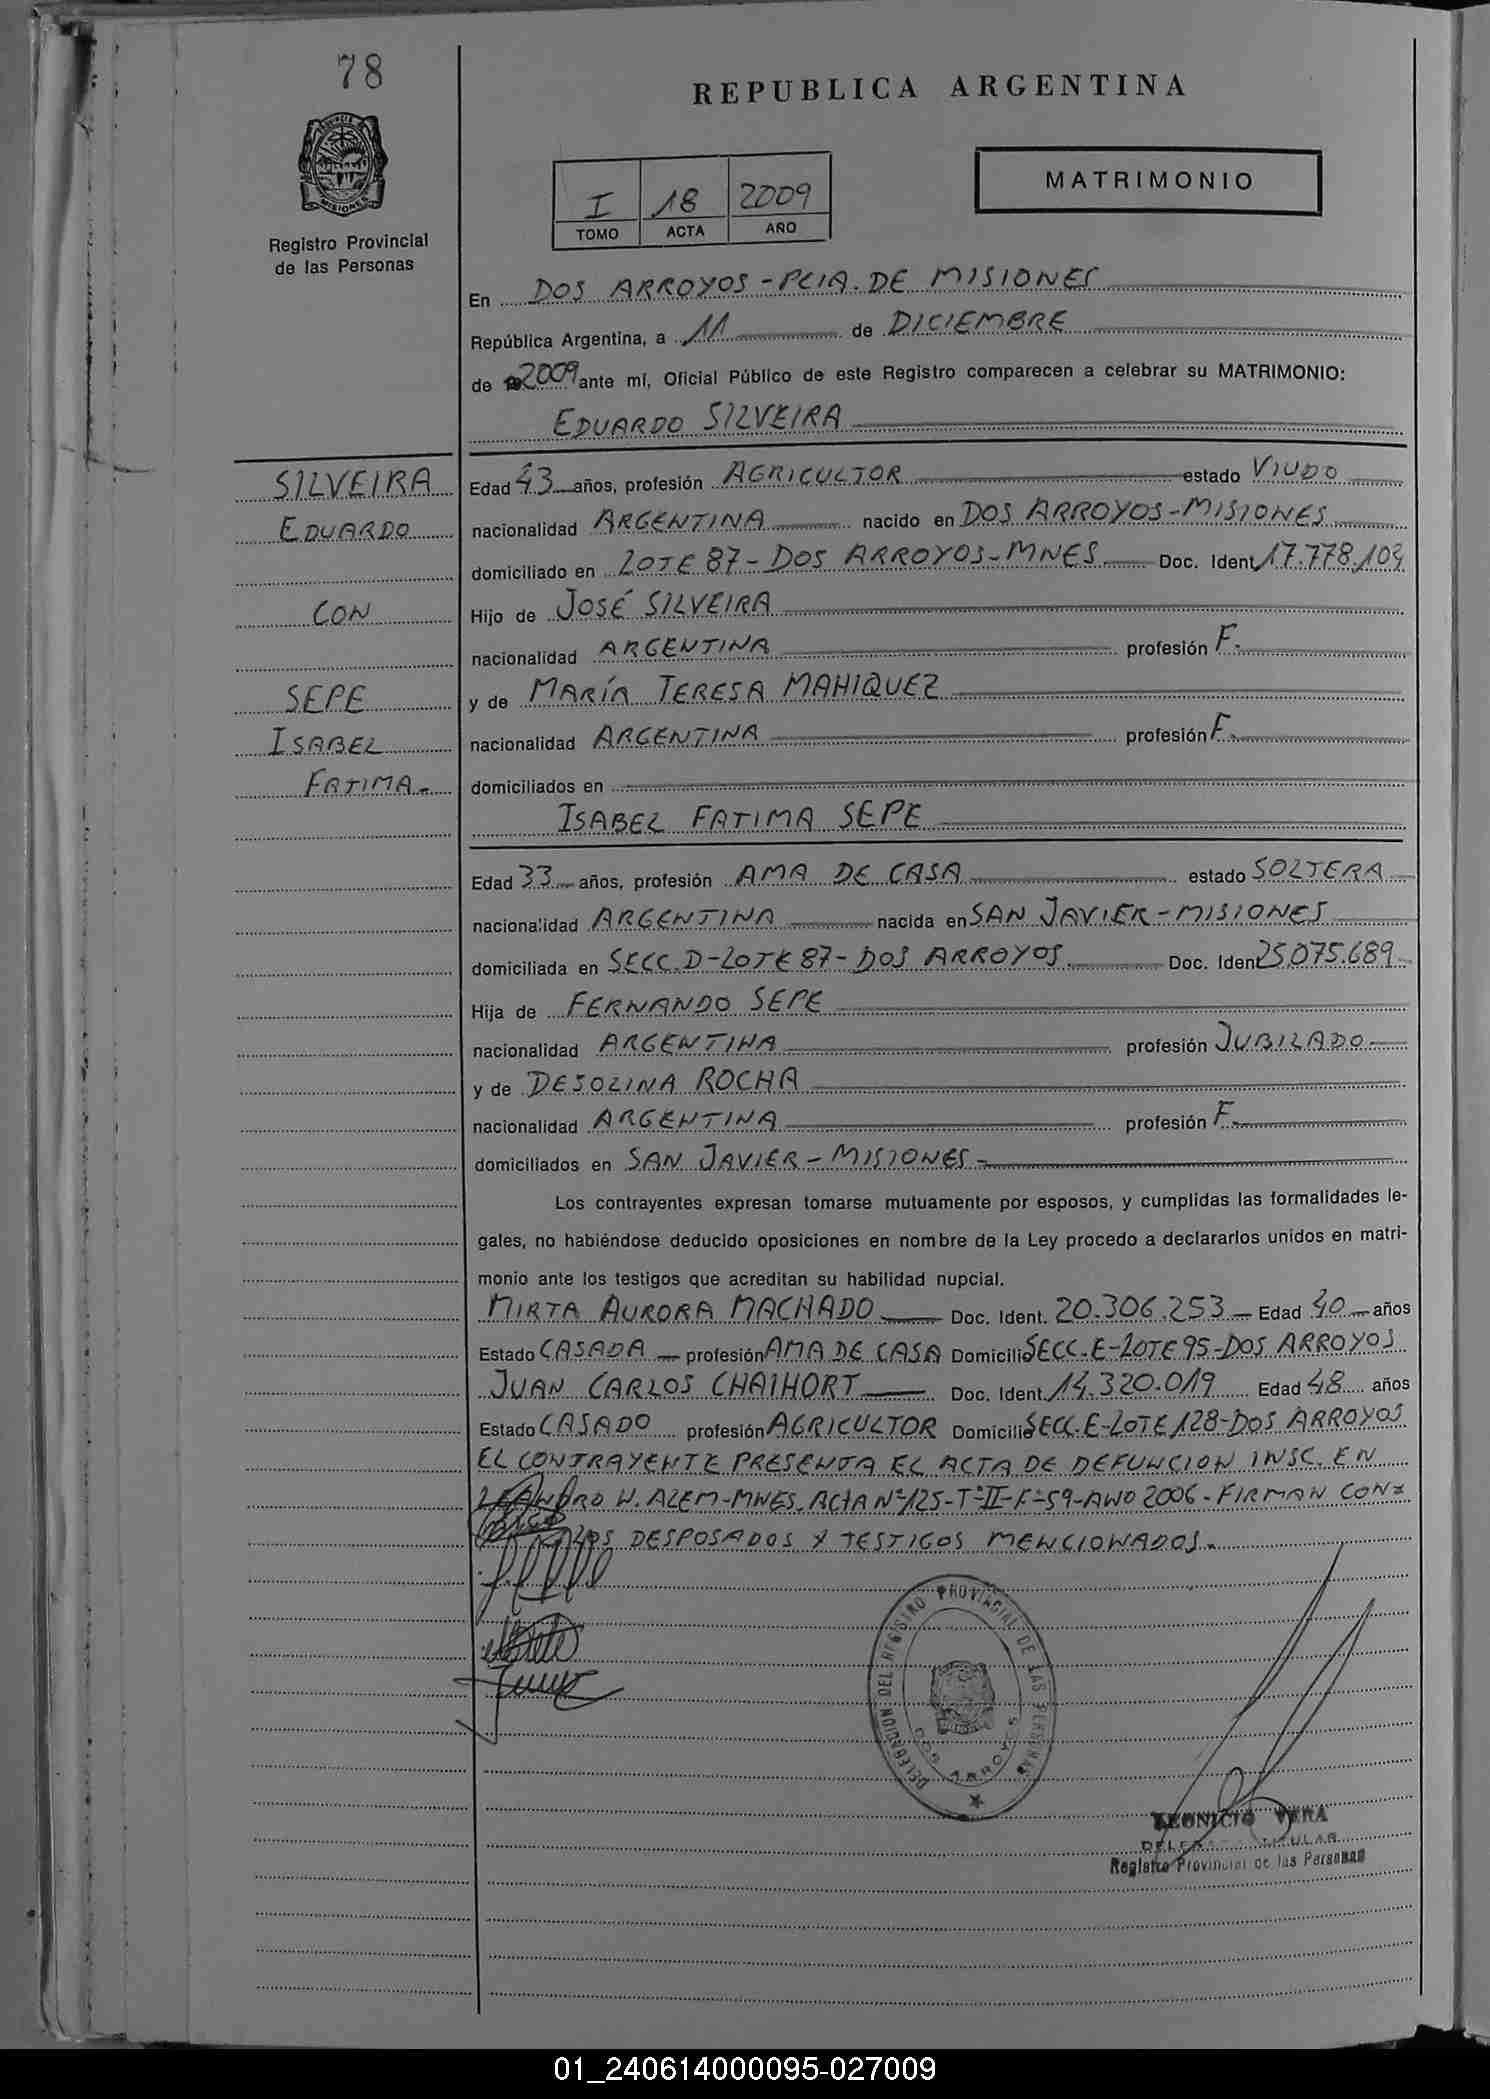 78
REPUBLICA ARGENTINA
MISIONES
Registro Provincial
de las Personas
I 18 2009
TOMO ACTA AÑO
MATRIMONIO
En DOS ARROYOS - PCIA. DE MISIONES
República Argentina, a 11 de DICIEMBRE
de 2009 ante mí, Oficial Público de este Registro comparecen a celebrar su MATRIMONIO:
EDUARDO SILVEIRA
SILVEIRA
EDUARDO
CON
SEPE
ISABEL
FATIMA.-
Edad 43 años, profesión AGRICULTOR estado VIUDO
nacionalidad ARGENTINA nacido en DOS ARROYOS-MISIONES
domiciliado en LOTE 87 - DOS ARROYOS-MNES Doc. Ident. 17.778.103
Hijo de JOSÉ SILVEIRA
nacionalidad ARGENTINA profesión F.
y de MARÍA TERESA MAHIQUEZ
nacionalidad ARGENTINA profesión F.
domiciliados en
ISABEL FATIMA SEPE
Edad 33 años, profesión AMA DE CASA estado SOLTERA
nacionalidad ARGENTINA nacida en SAN JAVIER - MISIONES
domiciliada en SECC. D-LOTE 87- DOS ARROYOS Doc. Ident 25.075.689
Hija de FERNANDO SEPE
nacionalidad ARGENTINA profesión JUBILADO
y de DESOLINA ROCHA
nacionalidad ARGENTINA profesión F.
domiciliados en SAN JAVIER - MISIONES -
Los contrayentes expresan tomarse mutuamente por esposos, y cumplidas las formalidades le-
gales, no habiéndose deducido oposiciones en nombre de la Ley procedo a declararlos unidos en matri-
monio ante los testigos que acreditan su habilidad nupcial.
MIRTA AURORA MACHADO Doc. Ident. 20.306.253 Edad 40 años
Estado CASADA profesión AMA DE CASA Domicilio SECC. E-LOTE 95-DOS ARROYOS
JUAN CARLOS CHAIHORT Doc. Ident. 14.320.019 Edad 48 años
Estado CASADO profesión AGRICULTOR Domicilio SECC. E-LOTE 128-DOS ARROYOS
EL CONTRAYENTE PRESENTA EL ACTA DE DEFUNCION INSC. EN
LEANDRO N. ALEM-MNES. ACTA Nº 125-Tº II-Fº 59-AÑO 2006 - FIRMAN CON
LOS DESPOSADOS Y TESTIGOS MENCIONADOS.-
DELEGACION DEL REGISTRO PROVINCIAL DE LAS PERSONAS
DOS ARROYOS
LEONICIO VERA
DELEGADO TITULAR
Registro Provincial de las Personas
01_240614000095-027009